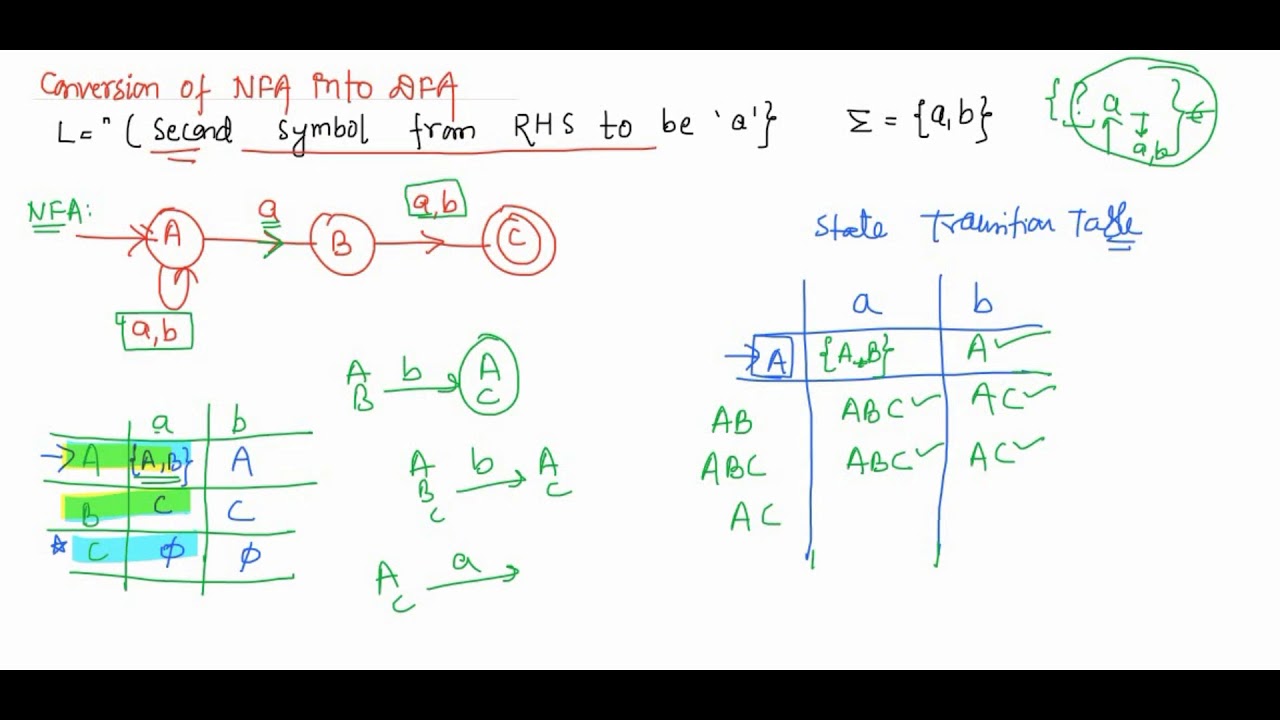 Conversion of NFA into DFA
L = " ( Second symbol from RHS to be 'a' }
Σ = {a,b}
{ ? a _ }
a,b
NFA:
A a B a,b C
a,b
State Transition Table
a b
→ A {A,B} A ✓
AB ABC ✓ AC ✓
ABC ABC ✓ AC ✓
AC
A b A
B C
A b A
B C
C
A a
C
a b
→ A {A,B} A
B C C
☆ C ϕ ϕ